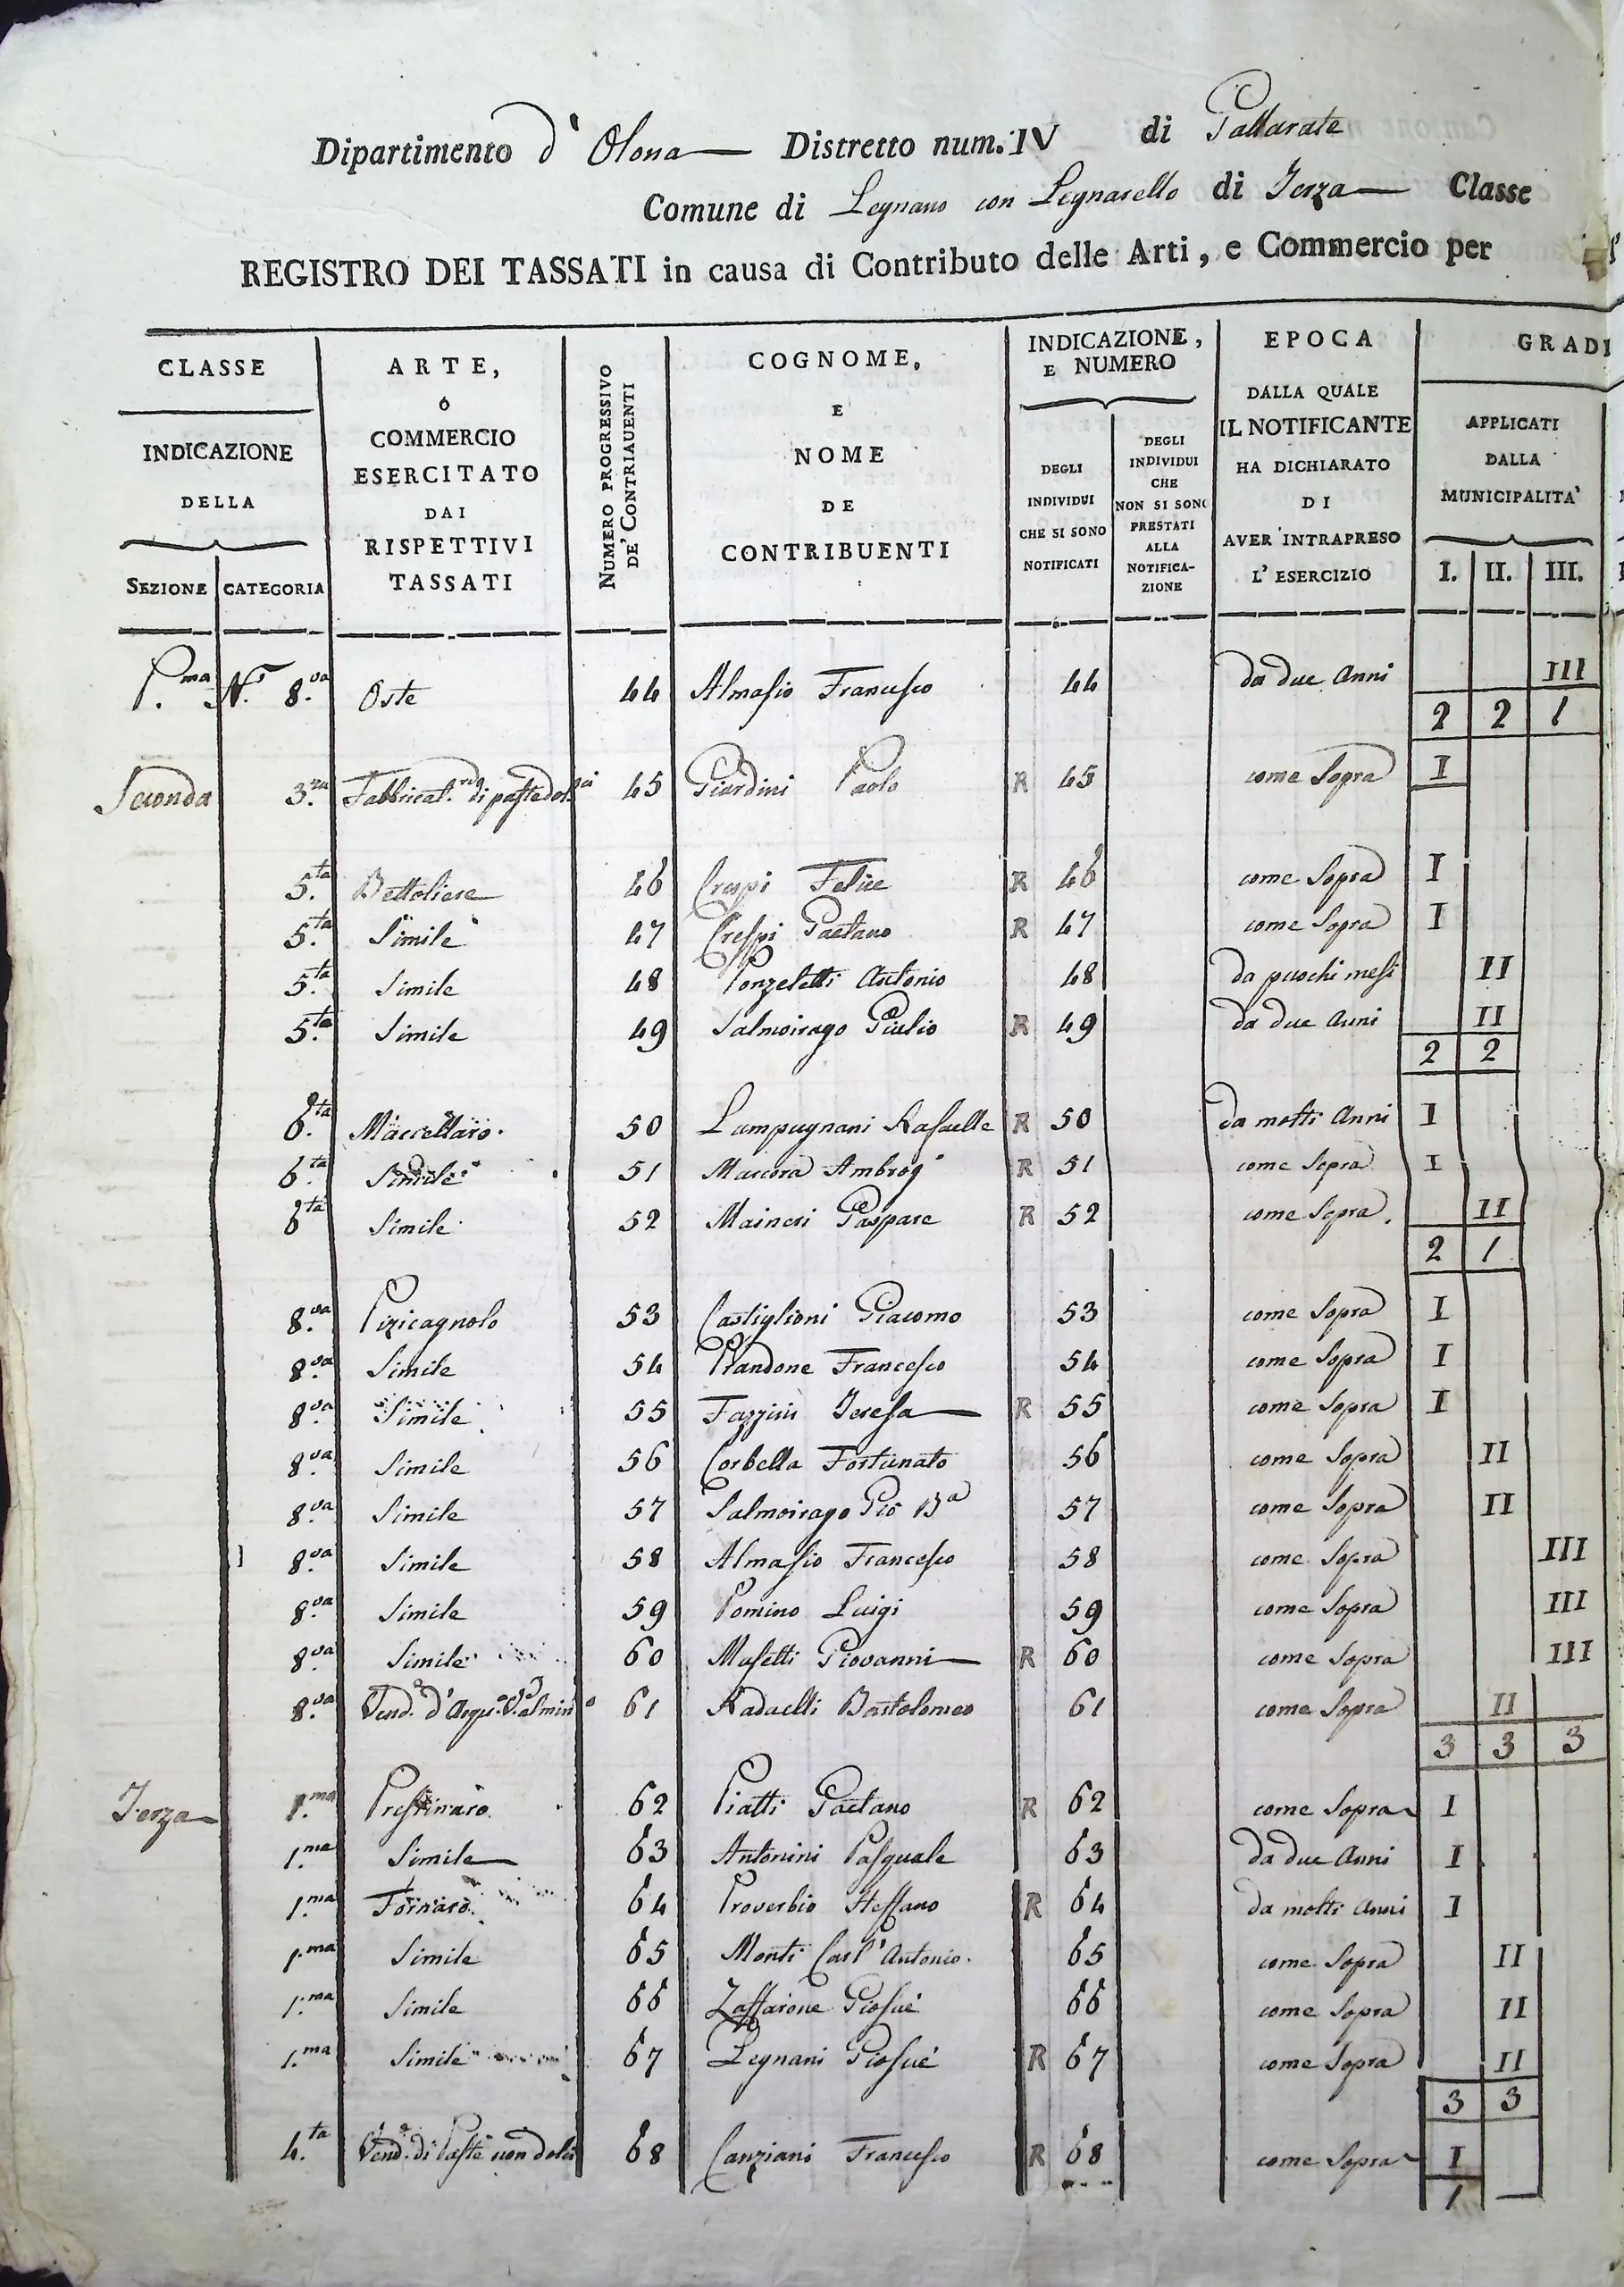 Dipartimento d'Olona Distretto num. IV di Gallarate
Comune di Legnano con Legnarello di Terza Classe
REGISTRO DEI TASSATI in causa di Contributo delle Arti, e Commercio per
CLASSE
INDICAZIONE
DELLA
SEZIONE CATEGORIA
ARTE,
Ó
COMMERCIO
ESERCITATO
DAI
RISPETTIVI
TASSATI
NUMERO PROGRESSIVO
DE' CONTRIAUENTI
COGNOME,
E
NOME
DE
CONTRIBUENTI
INDICAZIONE,
E NUMERO
DEGLI
INDIVIDUI
CHE SI SONO
NOTIFICATI
DEGLI
INDIVIDUI
CHE
NON SI SONO
PRESTATI
ALLA
NOTIFICA-
ZIONE
EPOCA
DALLA QUALE
IL NOTIFICANTE
HA DICHIARATO
DI
AVER INTRAPRESO
L' ESERCIZIO
GRADI
APPLICATI
DALLA
MUNICIPALITA'
I. II. III.
P.ma N.° 8.va Oste 44 Almasio Francesco 44 da due Anni III
2 2 1
Seconda 3.za Fabbricat.re di paste dolci 45 Giardini Paolo R 45 come Sopra I
5.ta Bettoliere 46 Crespi Felice R 46 come Sopra I
5.ta Simile 47 Crespi Gaetano R 47 come Sopra I
5.ta Simile 48 Ponzeletti Antonio 48 da puochi mesi II
5.ta Simile 49 Salmoirago Giulio R 49 da due Anni II
2 2
6.ta Maccellaro. 50 Lampugnani Rafaelle R 50 da molti Anni I
6.ta Simile 51 Marcora Ambrog.° R 51 come Sopra I
6.ta Simile 52 Maineri Gaspare R 52 come Sopra. II
2 1
8.va Pizicagnolo 53 Castiglioni Giacomo 53 come Sopra I
8.va Simile 54 Prandone Francesco 54 come Sopra I
8.va Simile 55 Fazzini Teresa R 55 come Sopra I
8.va Simile 56 Corbella Fortunato 56 come Sopra II
8.va Simile 57 Salmoirago Gio Ba 57 come Sopra II
8.va Simile 58 Almasio Francesco 58 come Sopra III
8.va Simile 59 Pomino Luigi 59 come Sopra III
8.va Simile 60 Masetti Giovanni R 60 come Sopra III
8.va Vend.e d'Acqu.a V.a al min.o 61 Radaelli Bartolomeo 61 come Sopra II
3 3 3
Terza 1.ma Prestinaro. 62 Piatti Gaetano R 62 come Sopra I
1.ma Simile 63 Antonini Pasquale 63 da due Anni I
1.ma Fornaro. 64 Proverbio Steffano R 64 da molti Anni I
1.ma Simile 65 Monti Carl'Antonio. 65 come Sopra II
1.ma Simile 66 Zaffarone Giosuè 66 come Sopra II
1.ma Simile 67 Legnani Giosuè R 67 come Sopra II
3 3
4.ta Vend.e di Paste non dolci 68 Canziani Francesco R 68 come Sopra I
1